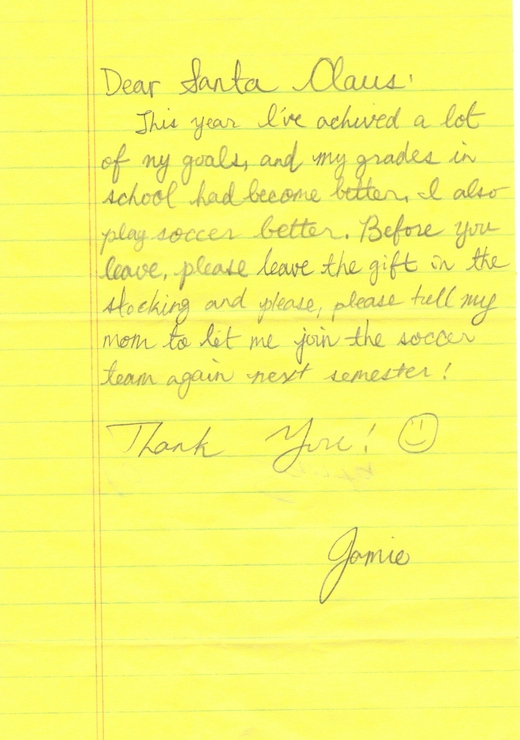 Dear Santa Claus:
This year I've achived a lot
of my goals, and my grades in
school had become better. I also
play soccer better. Before you
leave, please leave the gift in the
stocking and please, please tell my
mom to let me join the soccer
team again next semester!
Thank You! ☺
Jamie